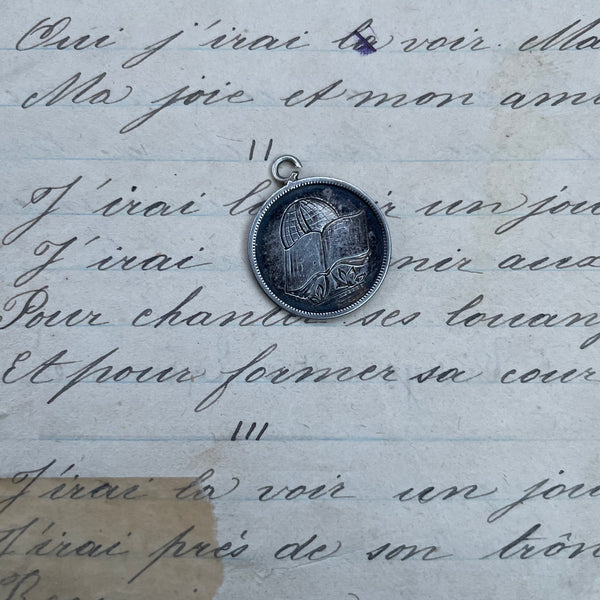 Oui j'irai la voir. Ma
Ma joie et mon am
II
J'irai la voir un jou
J'irai nir aux
Pour chanter ses louang
Et pour former sa cour
III
J'irai la voir un jou
J'irai près de son trôn